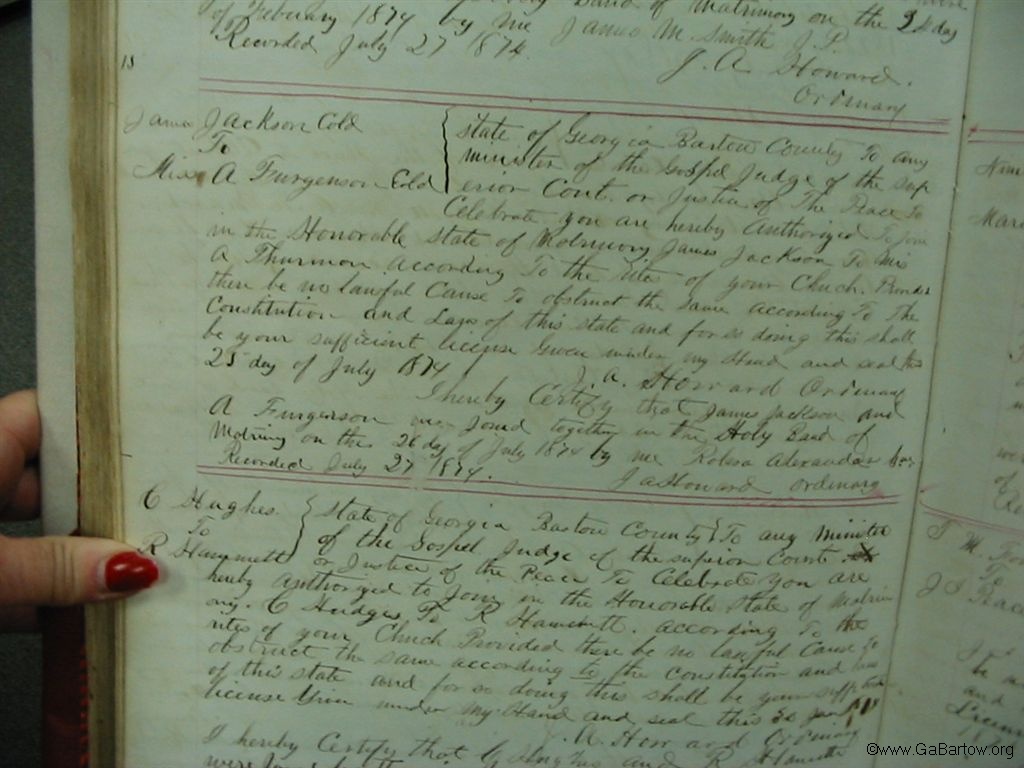 of February 1874 by me James M Smith J.P.
Recorded July 27 1874.
J. A. Howard.
Ordinary
James Jackson Cold
To
Miss A Furgenson Cold
State of Georgia Bartow County To any
minister of the Gospel Judge of the Sup
erior Cort. or Justice of The Peace To
Celebrate you are hereby Authorized To join
in the Honorable State of Matrimony James Jackson To Mis
A Thurmon according To the rites of your Chuch. Provided
there be no lawful Cause To obstruct the same according To The
Constitution and Laws of this state and for so doing this shall
be your sufficient license Given under my Hand and seal this
25 day of July 1874
J. A. Howard Ordinary
I hereby Certify that James Jackson and
A Furgenson were Joind together in the Holy Band of
Matrimony on the 26 day of July 1874 by me Alexander
Recorded July 27 1874.
J A Howard Ordinary
C Hughes
To
R Hammett
State of Georgia Bartow County To any minister
of the Gospel Judge of the superior Court
or Justice of the Peace To Celebrate you are
hereby Authorized to Join in the Honorable State of Matrim
ony. C Hudges To R Hamett. according To the
rites of your Chuch Provided there be no lawful Cause to
obstruct the same according to the constitution and laws
of this state and for so doing this shall be your sufficient
license Given under my Hand and seal this 30
A. Howard Ordinary
I hereby Certify that C Hughes and R Hamette
©www.GaBartow.org